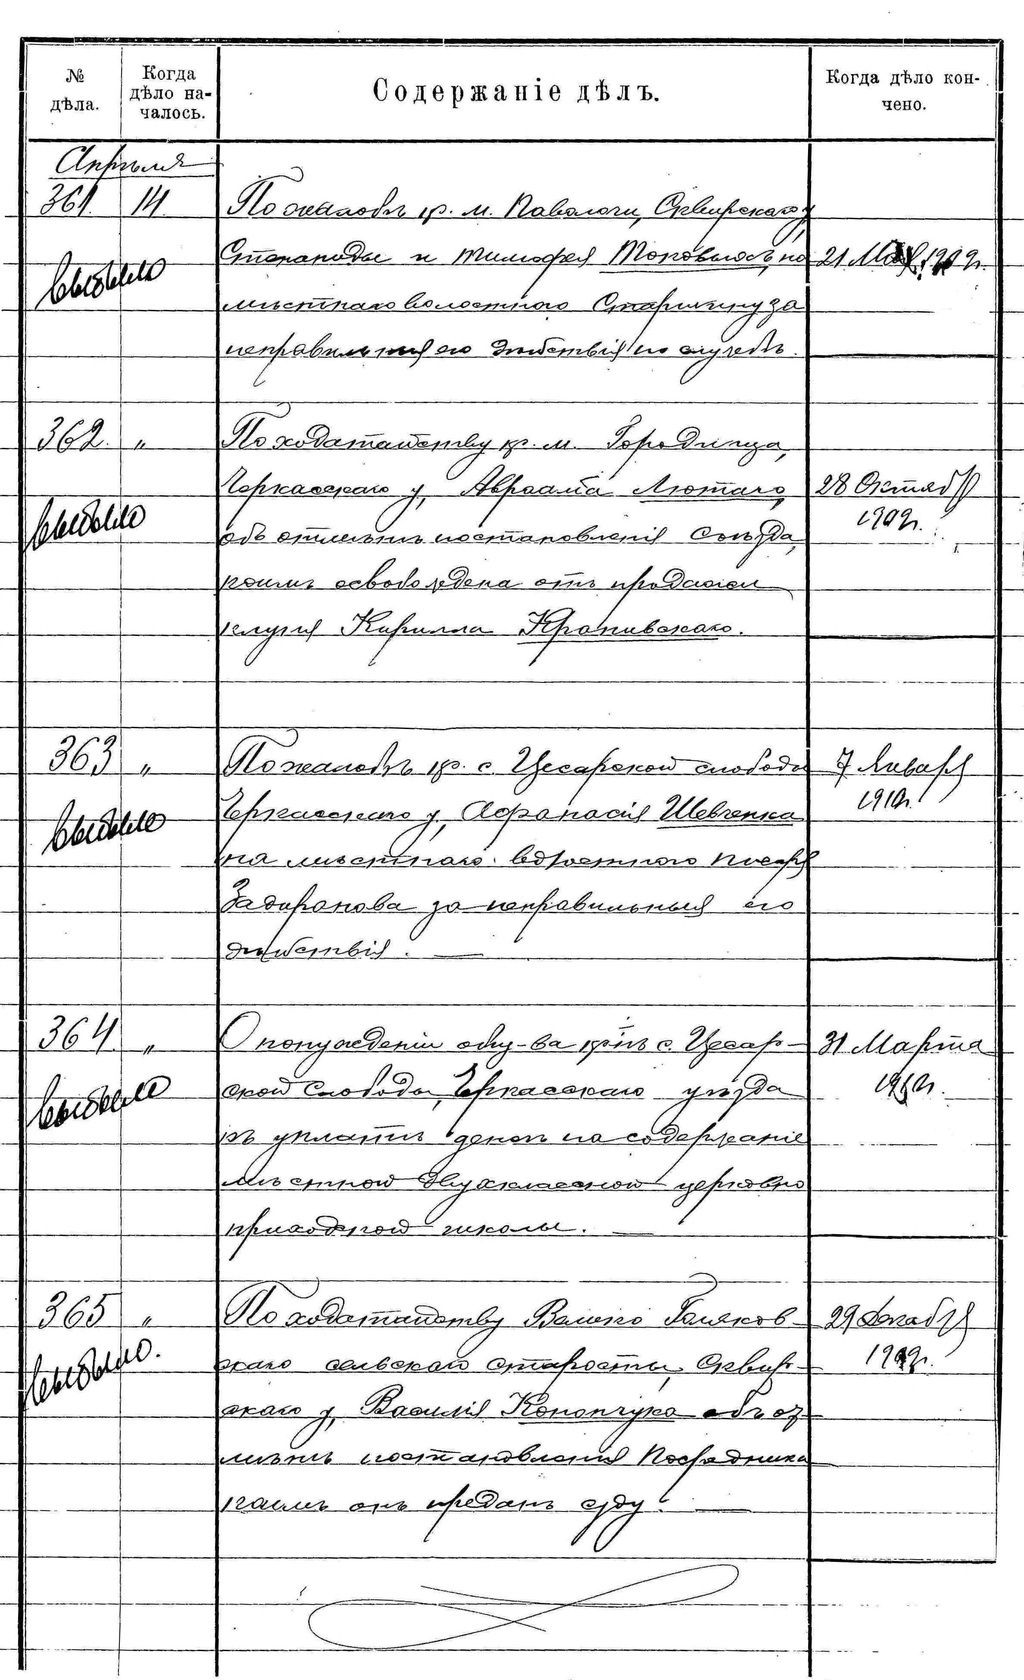 № дѣла.
Когда дѣло началось.
Содержаніе дѣлъ.
Когда дѣло кончено.
Апрѣля
361. 14. По жалобѣ кр. м. Паволочи, Сквирскаго у,
выбыло Степаниды и Тимофея на 21 Мая 1909г.
мѣстнаго волостного Старшину за
неправильныя его дѣйствія по службѣ.
362. „ По ходатайству кр. м. Городища,
Черкасскаго у, Авраама Лютаго, 28 Октября
выбыло 1909г.
объ отмѣнѣ постановленія Съѣзда,
коимъ освобождена отъ продажи
клуня Кирилла Кропивскаго.
363 „ По жалобѣ кр. с. Цесарской слободы 7 Января
выбыло Черкасскаго у, Афанасія Шевченка 1910г.
на мѣстнаго волостного писаря
за неправильныя его
дѣйствія. —
364. „ О понужденіи общ-ва кр-нъ с. Цесар- 31 Марта
выбыло ской Слободы, Черкасскаго уѣзда
къ уплатѣ денегъ на содержаніе
мѣстной двухклассной церковно
приходской школы. —
365 „ По ходатайству 29 Декабря
выбыло. скаго сельскаго старосты, Сквир- 1909г.
скаго у, Василія Конончука объ от-
мѣнѣ постановленія Посредника
коимъ онъ преданъ суду. —